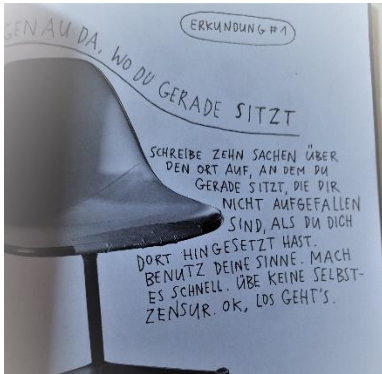 ERKUNDUNG #1
GENAU DA, WO DU GERADE SITZT
SCHREIBE ZEHN SACHEN ÜBER
DEN ORT AUF, AN DEM DU
GERADE SITZT, DIE DIR
NICHT AUFGEFALLEN
SIND, ALS DU DICH
DORT HINGESETZT HAST.
BENUTZ DEINE SINNE. MACH
ES SCHNELL. ÜBE KEINE SELBST-
ZENSUR. OK, LOS GEHT'S.